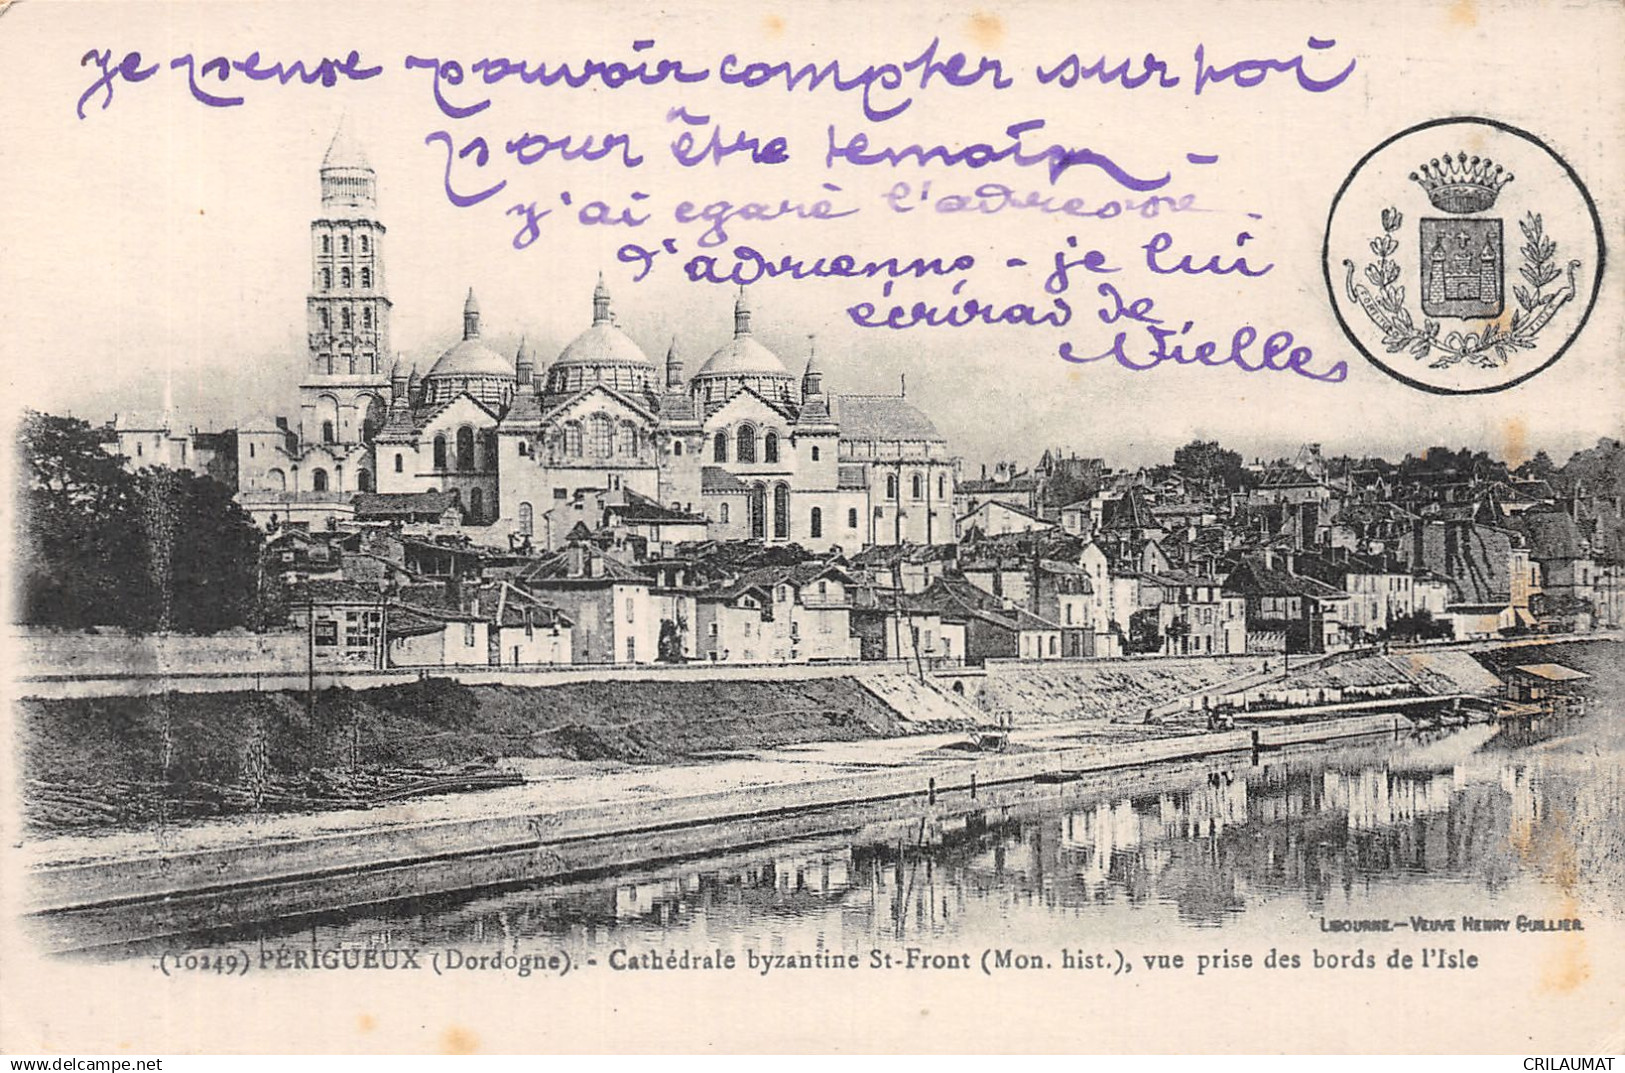 je pense pouvoir compter sur toi
pour être témoin -
j'ai egaré l'adresse
d'adrienne - je lui
écrirad de
Nielles
LIBOURNE.—VEUVE HENRY GUILLIER
(10249) PÉRIGUEUX (Dordogne). - Cathédrale byzantine St-Front (Mon. hist.), vue prise des bords de l'Isle
delcampe.net
CRILAUMAT